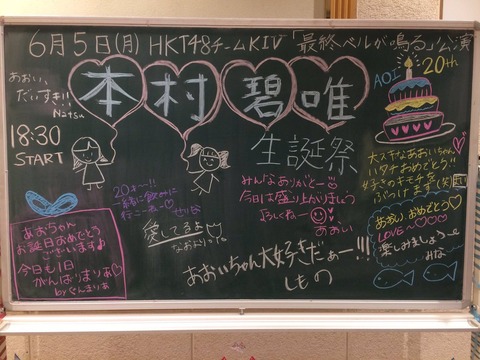 6月5日(月) HKT48チームKⅣ「最終ベルが鳴る」公演
本村碧唯
生誕祭
あおい、
だいすき!!
Natsu
18:30
START
AOI 20th
大スキなあおいちゃん
ハタチおめでとう♡
ぶつけます(笑)
20才〜!!
一緒に飲みに
行こーねー♡
せりな
愛してるよ
なおぶり
みんなありがとー♡
今日は盛り上がりましょう
よろしくねー
あおい
あおい おめでとう♡
LOVE〜♡♡♡♡
楽しみましょう〜
みな
あおちゃん
お誕生日おめでとう
ございます♪
今日も1日
がんばりまりあ♡
byぐんまりあ
あおいちゃん大好きだぁー!!!
しもの